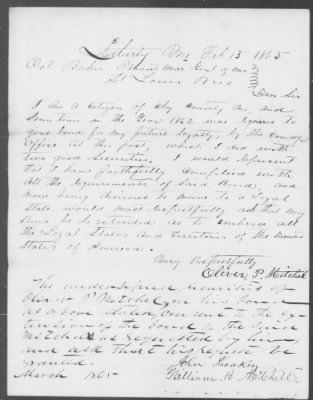 Liberty Mo Feb 13 1865
Col Baker Provost Mar Genl of Mo
St Louis Mo
Dear Sir
I am a citizen of Clay County Mo, and
Sometime in the Year 1862 was required to
give bond for my future loyalty, by the
Officer at this post, which I did with
two good Securities, I would represent
that I have faithfully Complied with
all the requirements of Said Bond, and
now being desirous to move to a Loyal
State, would most respectfully ask that my
Bond be so extended as to embrace all
the Loyal States and Territories of the United
States of America.
Very Respectfully
Oliver P. Mitchell
The undersigned securities of
Oliver P Mitchell on his bond
as above stated, consent to the ex-
tension of the bond of the
Mitchell as requested by him,
and ask that his request be
granted.
John
March 1865
William H Mitchell